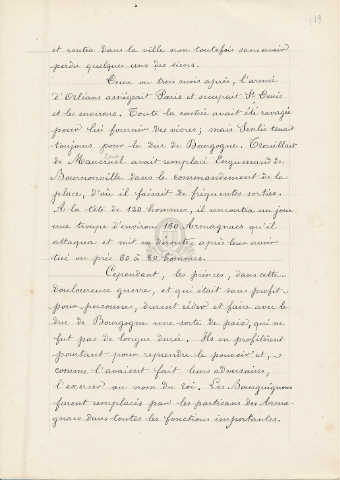 119
et rentra dans la ville non toutefois sans avoir
perdu quelques uns des siens.
Deux ou trois mois après, l'armée
d'Orléans assiégeait Paris et occupait St Denis
et les environs. Toute la contrée avait été ravagée
pour lui fournir des vivres ; mais Senlis tenait
toujours pour le duc de Bourgogne. Trouillart
de Maucruël avait remplacé Enguerrand de
Bournonville dans le commandement de la
place, d'où il faisait de fréquentes sorties.
A la tête de 120 hommes, il rencontra un jour
une troupe d'environ 160 Armagnacs qu'il
attaqua et mit en déroute après leur avoir
tué ou pris 60 à 80 hommes.
Cependant, les princes, dans cette
douloureuse guerre, et qui était sans profit
pour personne, durent céder et faire avec le
duc de Bourgogne une sorte de paix, qui ne
fut pas de longue durée. Ils en profitèrent
pourtant pour reprendre le pouvoir et,
comme l'avaient fait leurs adversaires,
l'exercer au nom du roi. Les Bourguignons
furent remplacés par les partisans des Arma-
gnacs dans toutes les fonctions importantes.